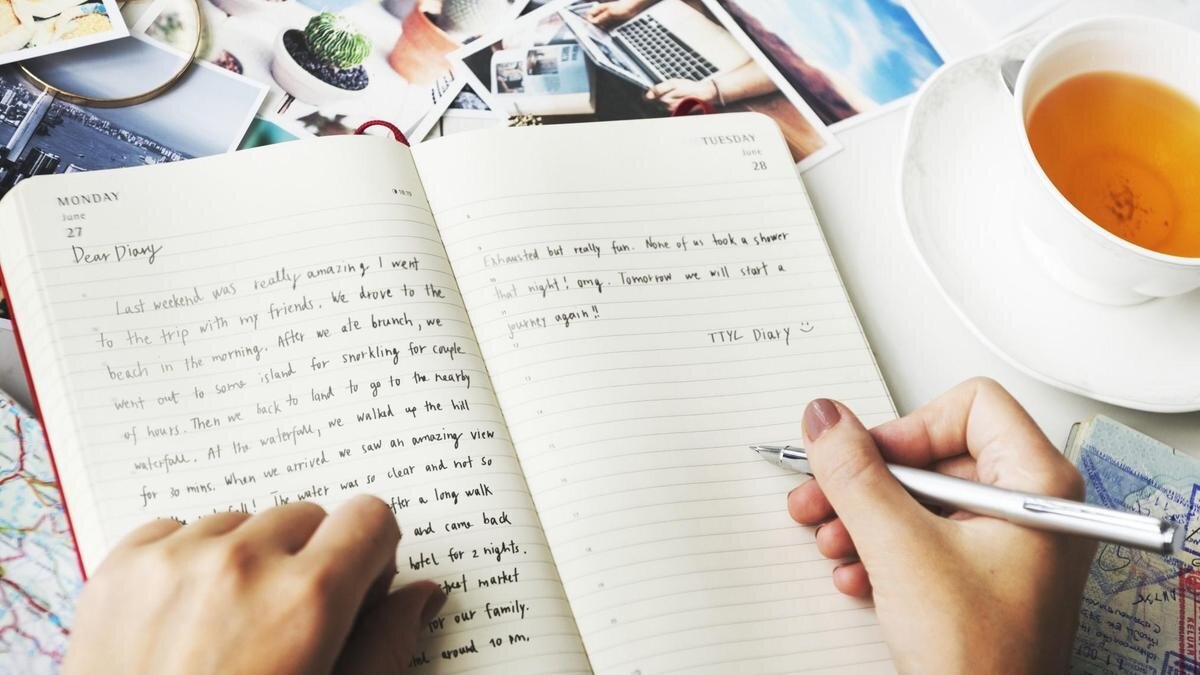 MONDAY
June
27
Dear Diary
Last weekend was really amazing I went
to the trip with my friends. We drove to the
beach in the morning. After we ate brunch, we
went out to some island for snorkling for couple
of hours. Then we back to land to go to the nearby
waterfall. At the waterfall, we walked up the hill
for 30 mins. When we arrived we saw an amazing view
The water was so clear and not so
after a long walk
and came back
hotel for 2 nights.
street market
for our family.
around 10 pm.
TUESDAY
June
28
Exhausted but really fun. None of us took a shower
that night! omg. Tomorrow we will start a
journey again!!
TTYL Diary